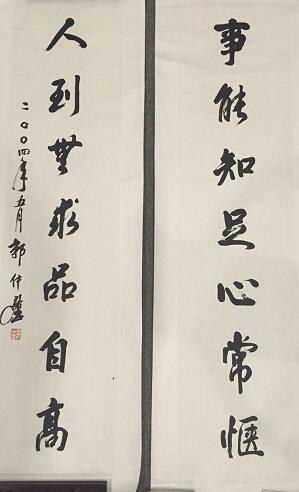 事能知足心常愜
人到無求品自高
二〇〇四年五月郭